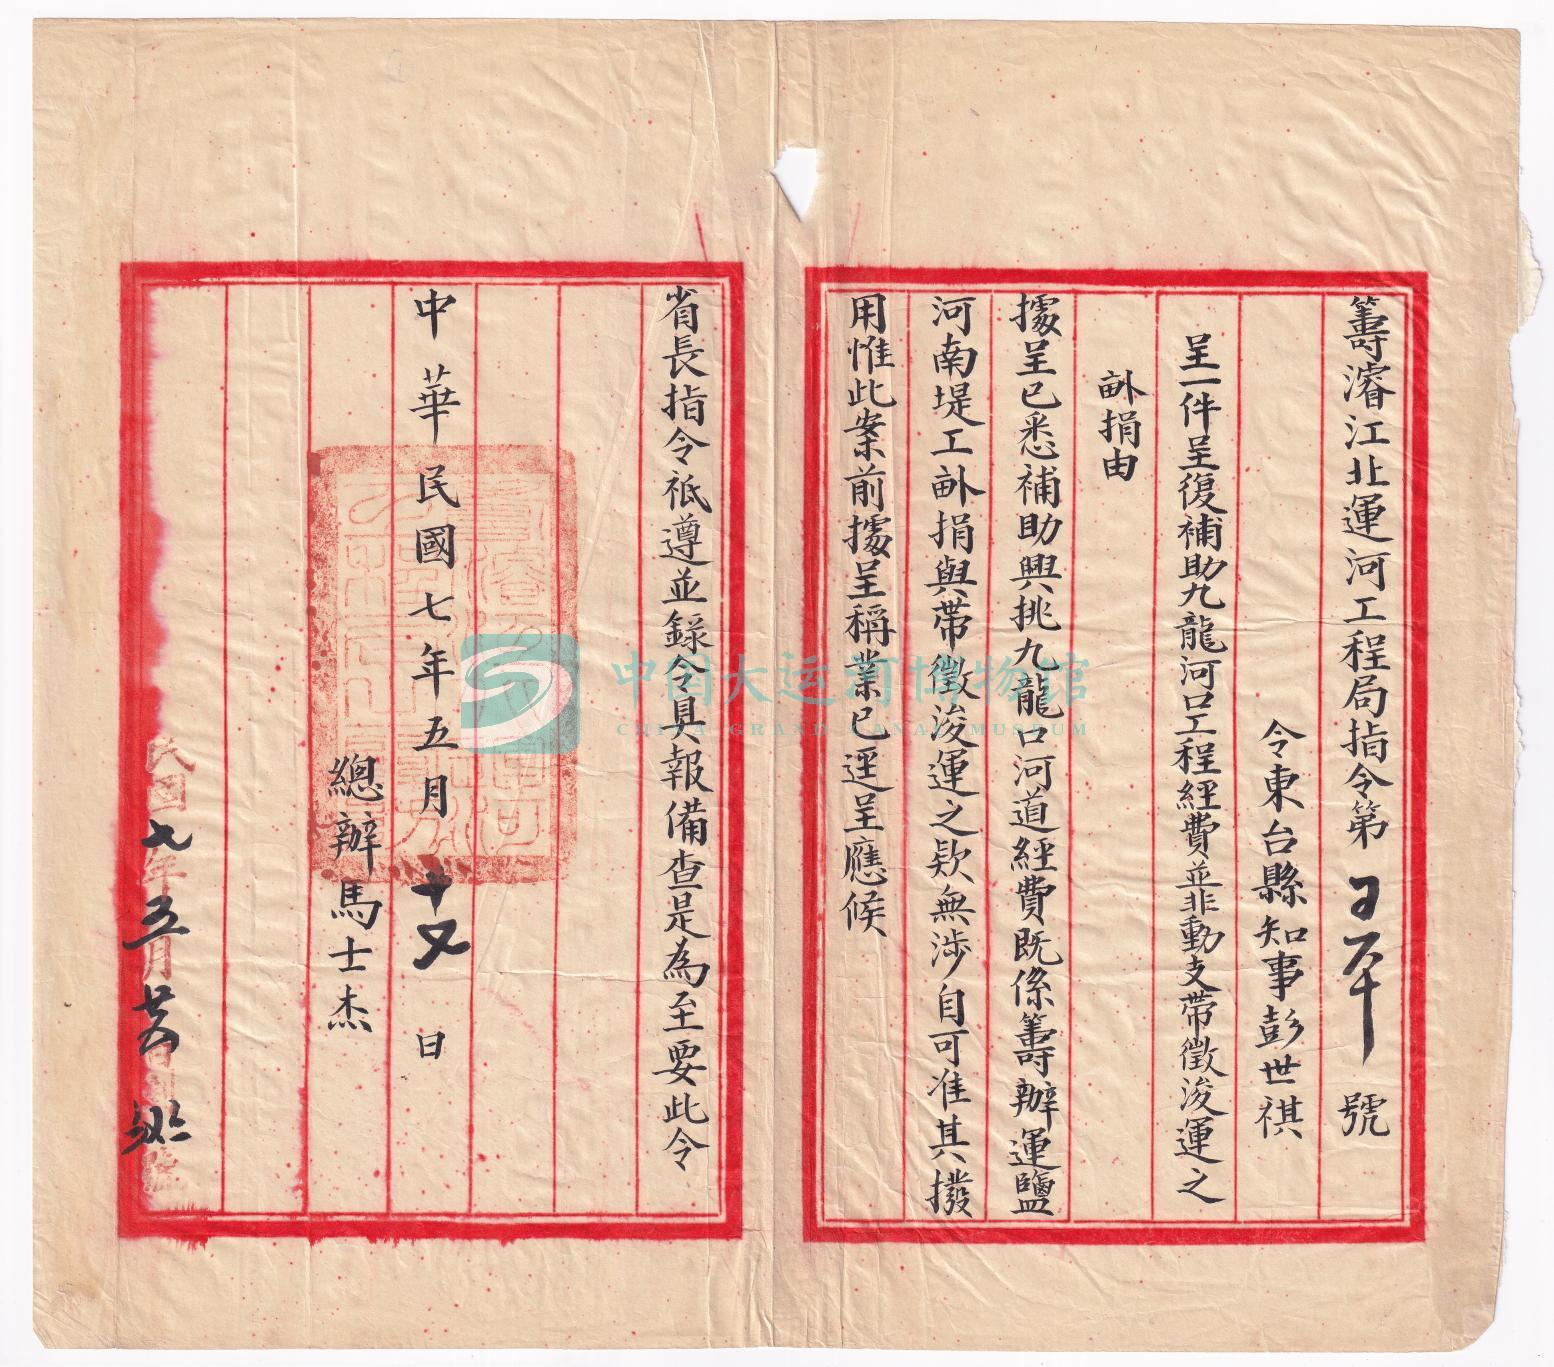 籌濬江北運河工程局指令第 號
令東台縣知事彭世祺
呈一件呈復補助九龍河口工程經費並非動支帶徵浚運之
畝捐由
據呈已悉補助興挑九龍口河道經費既係籌辦運鹽
河南堤工畝捐與帶徵浚運之欵無涉自可准其撥
用惟此案前據呈稱業已逕呈應候
省長指令祗遵並錄令具報備查是為至要此令
中華民國七年五月十又日
總辦馬士杰
民國七年五月廿
中国大运河博物馆
CHINA GRAND CANAL MUSEUM